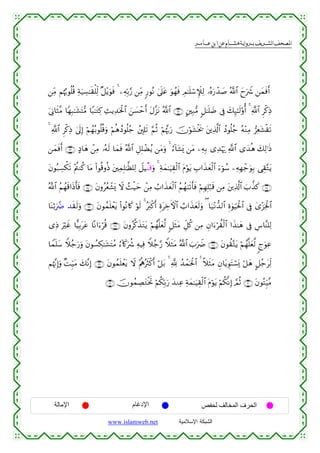 المصحف الشريف برواية هشام عن ابن عامر
أَفَمَن شَرَحَ ٱللَّهُ صَدْرَهُۥ لِلْإِسْلَٰمِ فَهُوَ عَلَىٰ نُورٍ مِّن رَّبِّهِۦ ۚ فَوَيْلٌ لِّلْقَٰسِيَةِ قُلُوبُهُم مِّن
ذِكْرِ ٱللَّهِ ۚ أُو۟لَٰٓئِكَ فِى ضَلَٰلٍ مُّبِينٍ ٱللَّهُ نَزَّلَ أَحْسَنَ ٱلْحَدِيثِ كِتَٰبًا مُّتَشَٰبِهًا مَّثَانِىَ
تَقْشَعِرُّ مِنْهُ جُلُودُ ٱلَّذِينَ يَخْشَوْنَ رَبَّهُمْ ثُمَّ تَلِينُ جُلُودُهُمْ وَقُلُوبُهُمْ إِلَىٰ ذِكْرِ ٱللَّهِ ۚ
ذَٰلِكَ هُدَى ٱللَّهِ يَهْدِى بِهِۦ مَن يَشَآءُ ۚ وَمَن يُضْلِلِ ٱللَّهُ فَمَا لَهُۥ مِنْ هَادٍ أَفَمَن
يَتَّقِى بِوَجْهِهِۦ سُوٓءَ ٱلْعَذَابِ يَوْمَ ٱلْقِيَٰمَةِ ۚ وَقِيلَ لِلظَّٰلِمِينَ ذُوقُوا۟ مَا كُنتُمْ تَكْسِبُونَ
كَذَّبَ ٱلَّذِينَ مِن قَبْلِهِمْ فَأَتَىٰهُمُ ٱلْعَذَابُ مِنْ حَيْثُ لَا يَشْعُرُونَ فَأَذَاقَهُمُ ٱللَّهُ
ٱلْخِزْىَ فِى ٱلْحَيَوٰةِ ٱلدُّنْيَا ۖ وَلَعَذَابُ ٱلْءَاخِرَةِ أَكْبَرُ ۚ لَوْ كَانُوا۟ يَعْلَمُونَ وَلَقَد ضَّرَبْنَا
لِلنَّاسِ فِى هَٰذَا ٱلْقُرْءَانِ مِن كُلِّ مَثَلٍ لَّعَلَّهُمْ يَتَذَكَّرُونَ قُرْءَانًا عَرَبِيًّا غَيْرَ ذِى
عِوَجٍ لَّعَلَّهُمْ يَتَّقُونَ ضَرَبَ ٱللَّهُ مَثَلًا رَّجُلًا فِيهِ شُرَكَآءُ مُتَشَٰكِسُونَ وَرَجُلًا سَلَمًا
لِّرَجُلٍ هَلْ يَسْتَوِيَانِ مَثَلًا ۚ ٱلْحَمْدُ لِلَّهِ ۚ بَلْ أَكْثَرُهُمْ لَا يَعْلَمُونَ إِنَّكَ مَيِّتٌ وَإِنَّهُم
مَّيِّتُونَ ثُمَّ إِنَّكُمْ يَوْمَ ٱلْقِيَٰمَةِ عِندَ رَبِّكُمْ تَخْتَصِمُونَ
الحرف المخالف لحفص الإدغام الإمالة
www.islamweb.net الشبكة الإسلامية